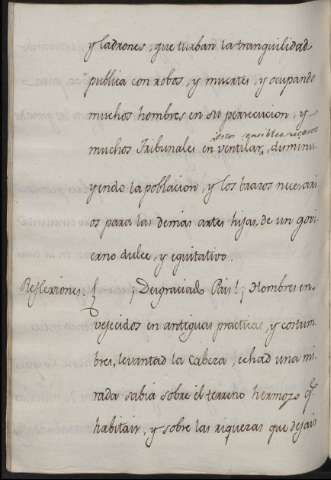 y ladrones, que turban la tranquilidad
publica con robos, y muertes, y ocupando
muchos hombres en su persecucion, y
muchos Tribunales en ventilar, diminu
yendo la poblacion, y los brazos necesari
os para las demas artes hijas de un govi
erno dulce, y equitativo.
Reflexiones. ¡Desgraciado Pais! ¡Hombres en
vejecidos en antiguas practicas, y costum
bres, levantad la cabeza, echad una mi
rada sabia sobre el terreno hermoso q.e
habitais, y sobre las riquezas que dejais